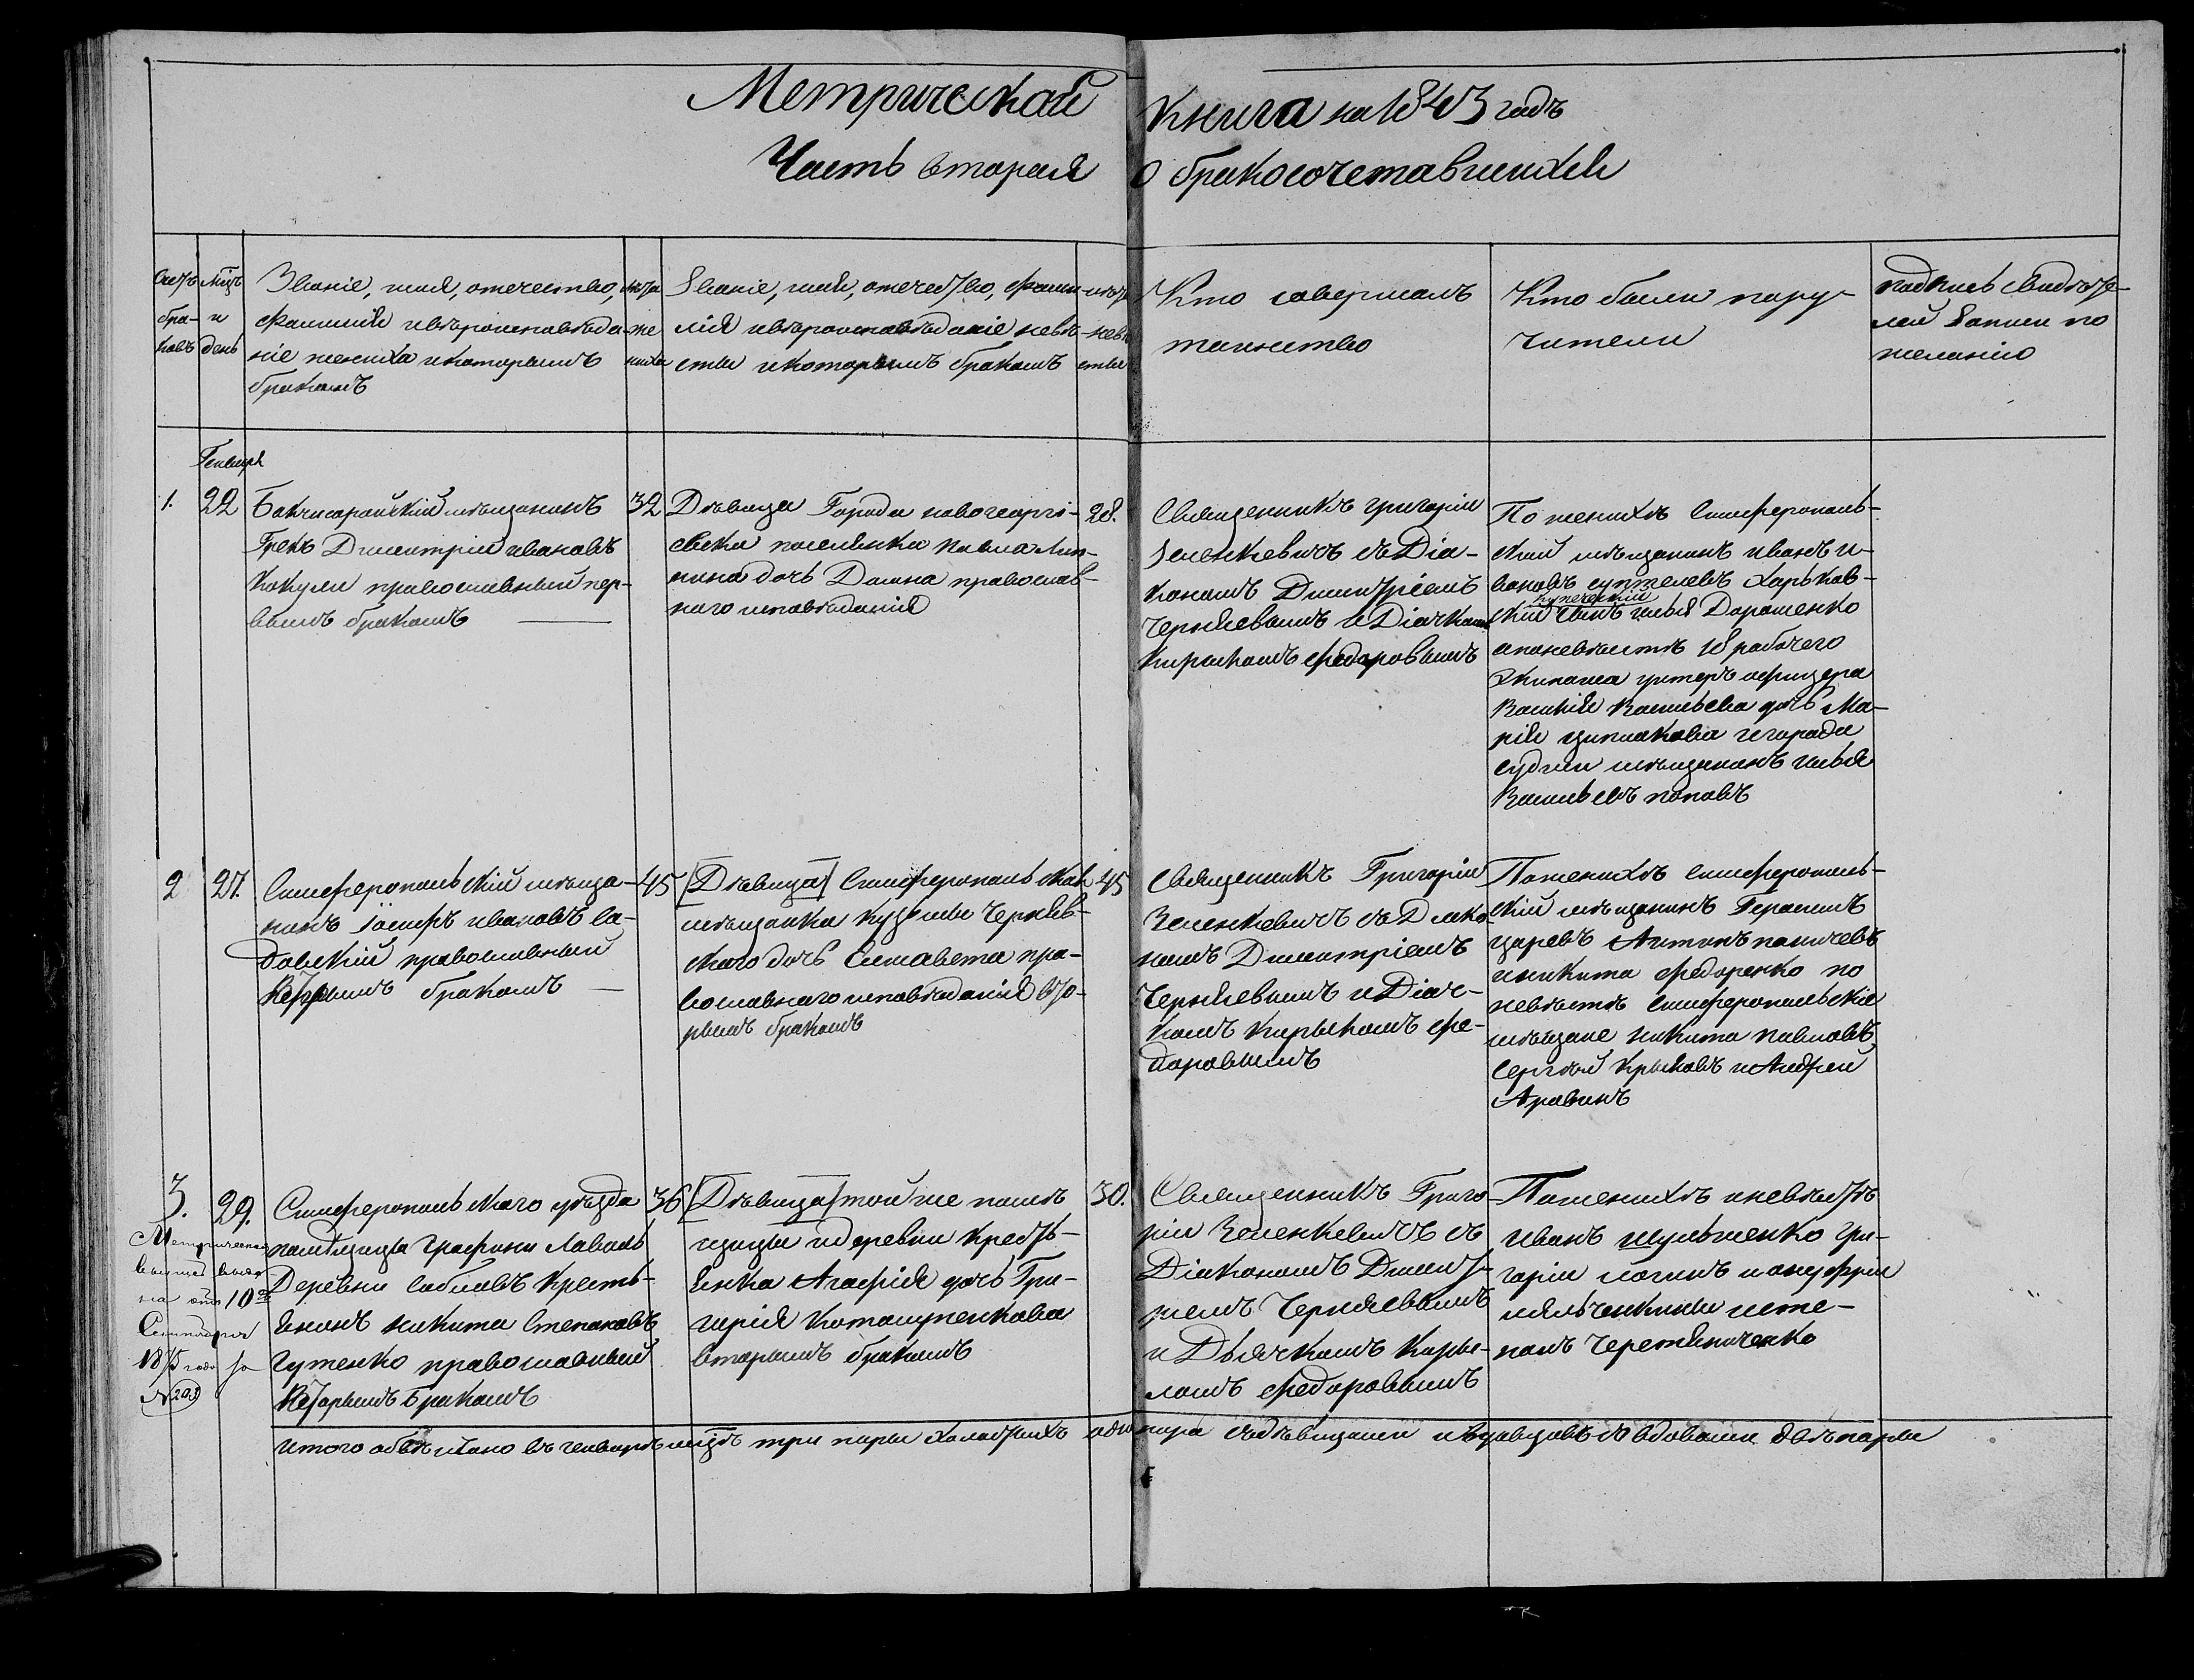 Метрической книга на 1843 годъ
Часть вторая о бракосочетавшихся
Счетъ браковъ
Мцъ и день
Званіе, имя, отечество,
фамилія и вѣроисповѣда-
ніе жениха и которымъ
бракомъ
лѣта же
ниха
Званіе, имя, отечество, фами-
лія и вѣроисповѣданіе невѣ-
сты и которымъ бракомъ
лѣта
невѣ
сты
Кто совершалъ
таинство
Кто были пору-
чители
подпись свидѣте-
лей записи по
желанію
Генваря
1.
22
Бакчисарайскій мѣщанинъ
Грекъ Дмитрій Ивановъ
Кокули православный пер-
вымъ бракомъ
32
Дѣвица Города новогеоргі-
евска поселянки Павла Лип-
нина дочь Домна православ-
наго исповѣданія
28.
Священникъ Григорій
Зеленкевичъ съ Діа-
кономъ Димитріемъ
Черняевымъ и Діячкомъ
Кирыломъ Федоровымъ
По женихѣ Симферополь-
скій мѣщанинъ Иванъ И-
вановъ Харьков-
скій купеческій сынъ Илья Дорошенко
а по невѣстѣ 18 рабочего
Экипажа унтеръ офицера
Василія Васильева дочь Ма-
рія и города
Суджи мѣщанинъ Илья
Васильевъ Поповъ
2
27.
Симферопольскій мѣща-
нинъ Іосифъ Ивановъ Са-
довскій православный
вторымъ бракомъ
45
[Дѣвица] Симферопольская
мѣщанка Кузьмы Чернев-
скаго дочь Елисавета пра-
вославнаго исповѣданія вто-
рымъ бракомъ
45
Священникъ Григорій
Зеленкевичъ съ Діако-
номъ Димитріемъ
Черняевымъ и Діяч-
комъ Кирыломъ Фе-
доровымъ
По женихѣ Симферополь-
скій мѣщанинъ Герасимъ
Царевъ Антонъ Паничевъ
и Никита Федоренко по
невѣстѣ Симферопольскіе
мѣщане Никита Павловъ,
Сергѣй Крыловъ и Андрей
Аравинъ
3.
29.
Метрическая
выписана
на отъ 10го
Сентября
1875 года за
№ 203
Симферопольскаго уѣзда
помѣщицы Графини Лаваль
Деревни Сабловъ Кресть-
янинъ Никита Степановъ
Гутенко православный
вторымъ бракомъ
36
[Дѣвица] той же помѣ
щицы и деревни Кресть-
янка Агафія дочь Гри-
горія Котолупенкова
вторымъ бракомъ
30.
Священникъ Григо-
рій Зеленкевичъ съ
Діакономъ Димит-
ріемъ Черняевымъ
и Дьячкомъ Киры-
ломъ Федоровымъ
По женихѣ и невѣстѣ
Иванъ Шульженко Гри-
горій и Онуфрій
и Сте-
панъ Черетянченко
Итого обвѣнчано въ генварѣ мцѣ три пары холостыхъ одна пара съ дѣвицами и вдовцовъ съ вдовами двѣ пары